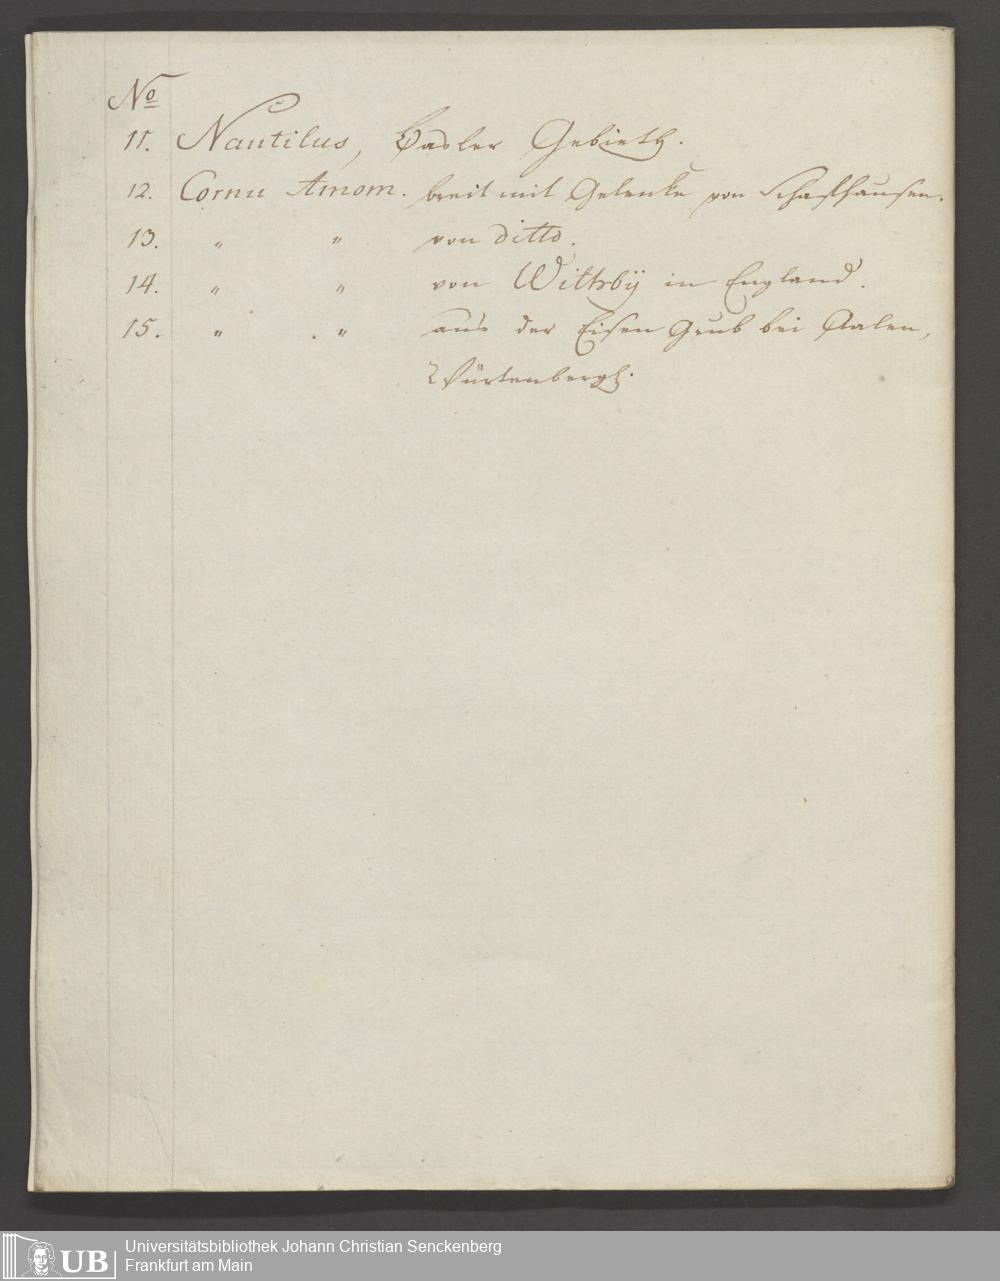 No
11. Nautilus, Basler Gebieth.
12. Cornu Amom. breit mit Gelenke von Schafhausen.
13. " " von ditto.
14. " " von Withbÿ in England.
15. " " aus der Eisen Grub bei Aalen,
Würtenbergl.
UB
Universitätsbibliothek Johann Christian Senckenberg
Frankfurt am Main